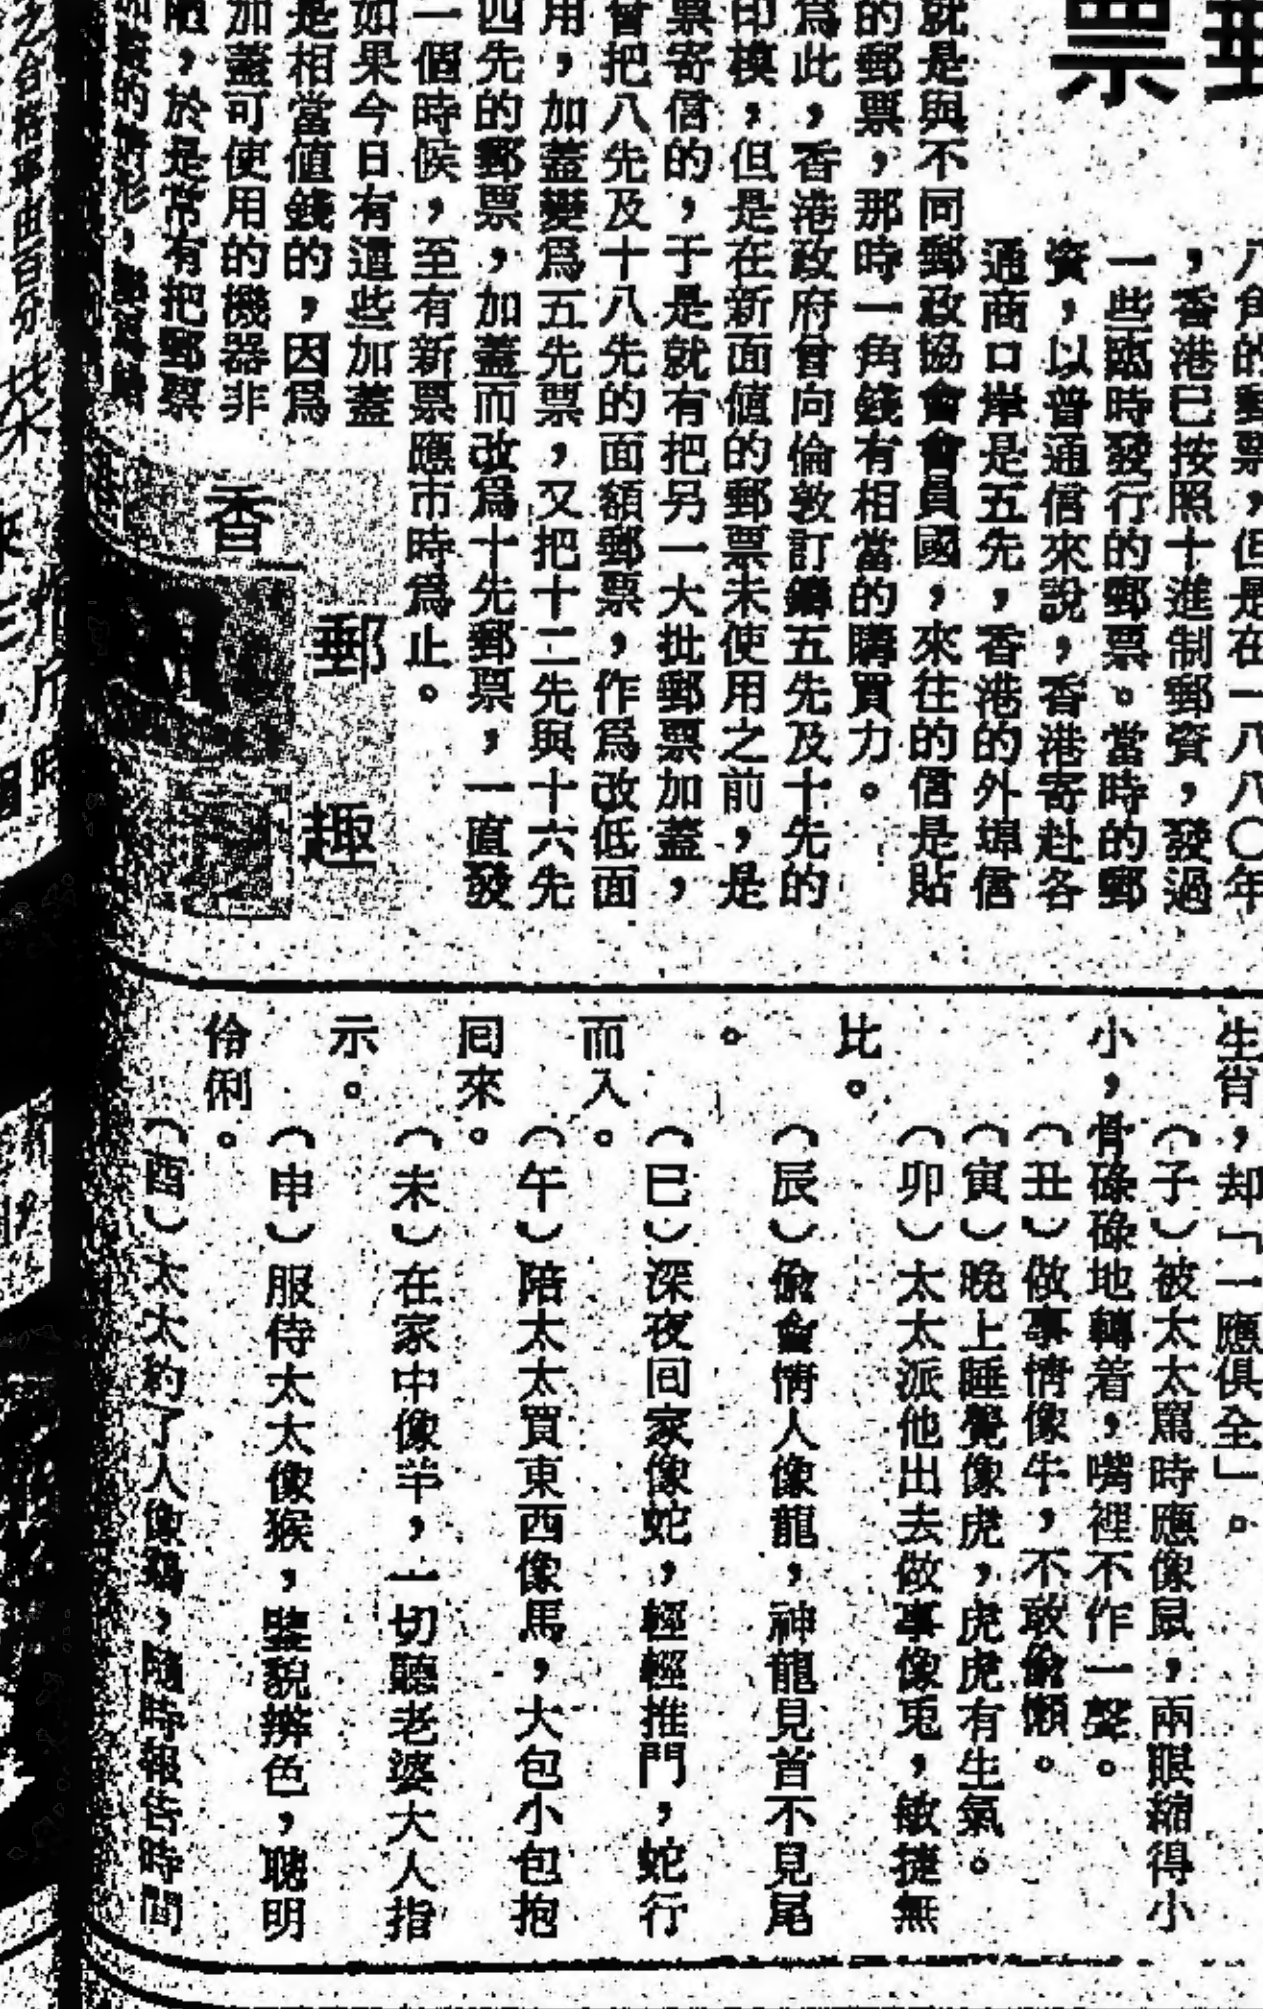 郵
票
八角的郵票，但是在一八八〇年
，香港已按照十進制郵資，發過
一些臨時發行的郵票。當時的郵
資，以普通信來說，香港寄赴各
通商口岸是五先，香港的外埠信
就是與不同郵政協會會員國，來往的信是貼
的郵票，那時一角錢有相當的購買力。
爲此，香港政府曾向倫敦訂鑄五先及十先的
印模，但是在新面値的郵票未使用之前，是
票寄信的，于是就有把另一大批郵票加蓋，
曾把八先及十八先的面額郵票，作爲改低面
用，加蓋變爲五先票，又把十二先與十六先
四先的郵票，加蓋而改爲十先郵票，一直發
一個時候，至有新票應市時爲止。
如果今日有這些加蓋
是相當値錢的，因爲
加蓋可使用的機器非
，於是常有把郵票
的情形，
香
郵
趣
生肖，却「一應俱全」。
（子）被太太罵時應像鼠，兩眼縮得小
小，骨碌碌地轉着，嘴裡不作一聲。
（丑）做事情像牛，不敢偷懶。
（寅）晚上睡覺像虎，虎虎有生氣。
（卯）太太派他出去做事像兎，敏捷無
比。
（辰）偷會情人像龍，神龍見首不見尾
。
（巳）深夜回家像蛇，輕輕推門，蛇行
而入。
（午）陪太太買東西像馬，大包小包抱
囘來。
（未）在家中像羊，一切聽老婆大人指
示。
（申）服侍太太像猴，鑒貌辨色，聰明
伶俐。
（酉）太太約了人像鷄，隨時報告時間